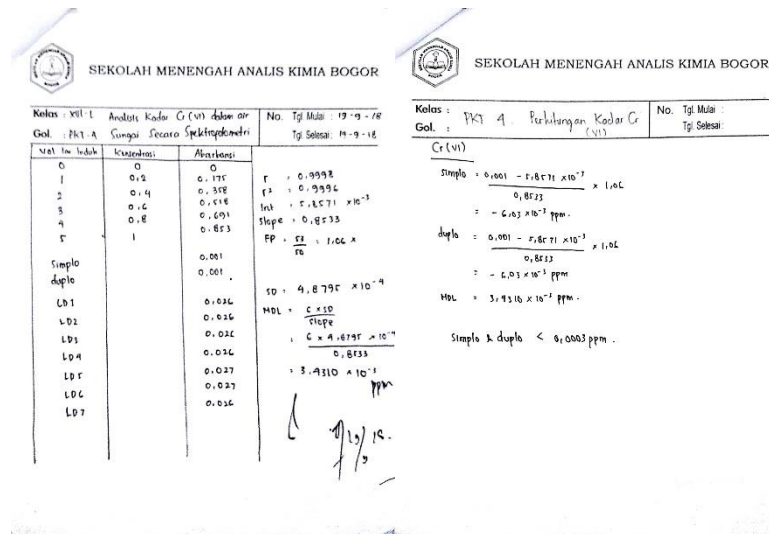 SEKOLAH MENENGAH ANALIS KIMIA BOGOR
Kelas : XIII-1 Analisis Kadar Cr (VI) dalam air No. Tgl. Mulai : 19-9-18
Gol. : PKT-A Sungai Secara Spektrofotometri Tgl. Selesai : 19-9-18
Vol lar Induk Konsentrasi Absorbansi
0 0 0
1 0,2 0,175
2 0,4 0,358
3 0,6 0,518
4 0,8 0,691
5 1 0,853
Simplo 0,001
duplo 0,001
LD1 0,026
LD2 0,026
LD3 0,026
LD4 0,026
LD5 0,027
LD6 0,027
LD7 0,026
r = 0,9998
r² = 0,9996
Int = 5,8571 x10⁻³
Slope = 0,8533
FP = 53/50 = 1,06 x
SD = 4,8795 x10⁻⁴
MDL = 6 x SD / slope
= 6 x 4,8795 x 10⁻⁴ / 0,8533
= 3,4310 x 10⁻³ ppm
SEKOLAH MENENGAH ANALIS KIMIA BOGOR
Kelas : PKT 4. Perhitungan Kadar Cr (VI) No. Tgl. Mulai :
Gol. : Tgl. Selesai :
Cr (VI)
Simplo = 0,001 - 5,8571 x10⁻³ / 0,8533 x 1,06
= - 6,03 x 10⁻³ ppm.
duplo = 0,001 - 5,8571 x10⁻³ / 0,8533 x 1,06
= - 6,03 x 10⁻³ ppm
MDL = 3,4310 x 10⁻³ ppm.
Simplo & duplo < 0,0003 ppm.